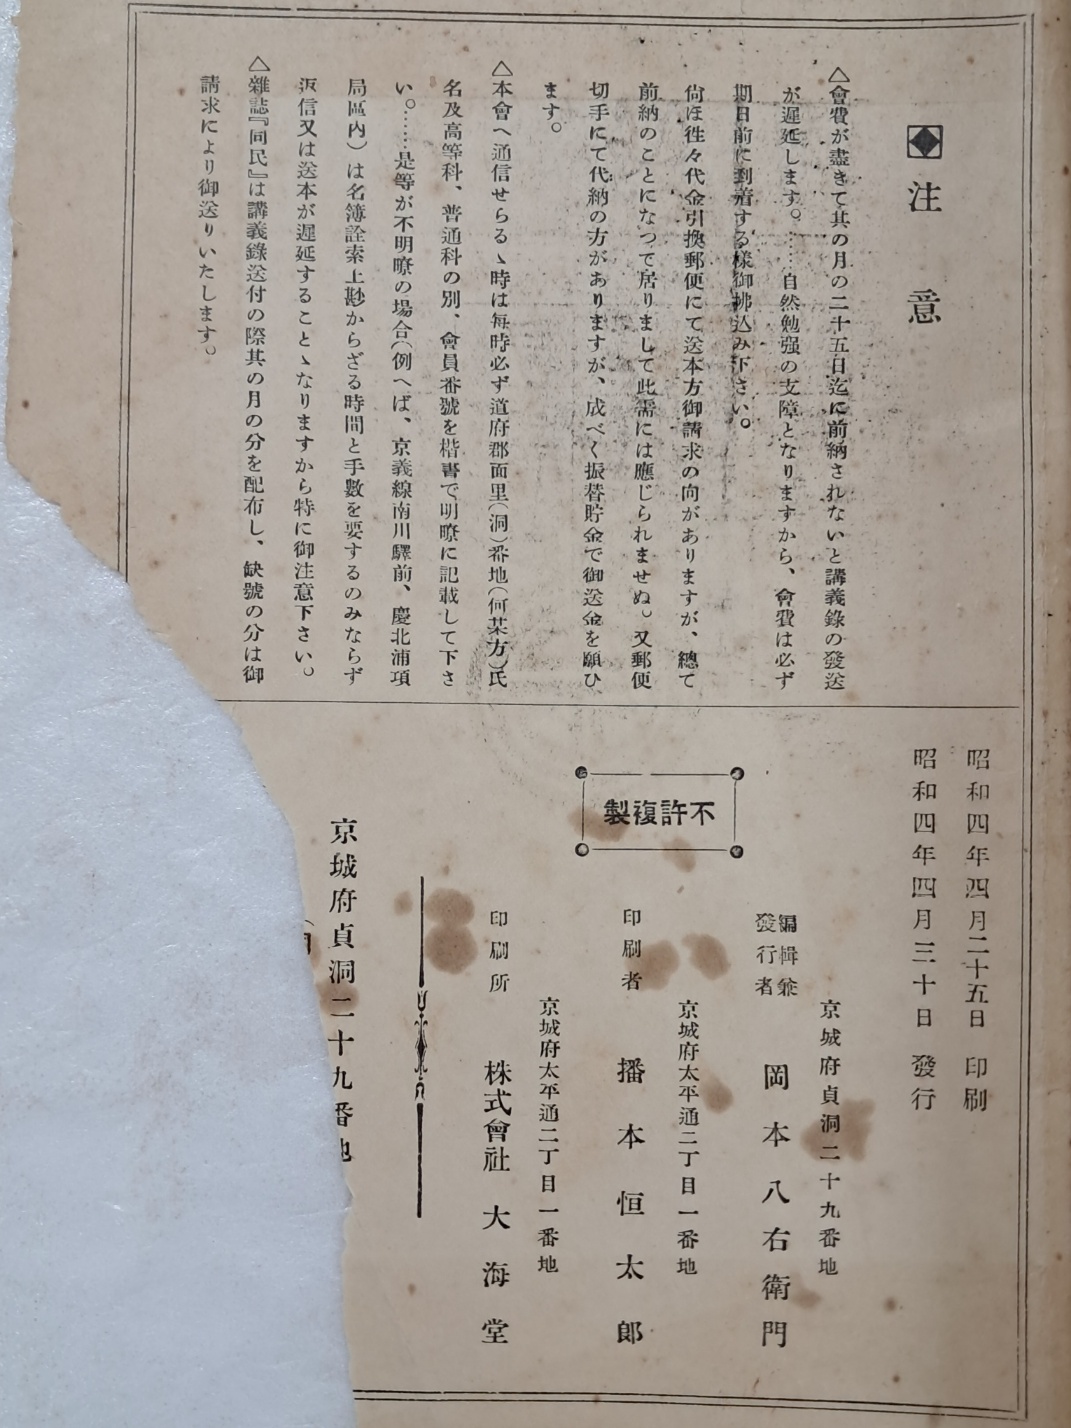 注意
△會費が盡きて其の月の二十五日迄に前納されないと講義錄の發送
が遲延します。……自然勉强の支障となりますから、會費は必ず
期日前に到着する樣御拂込み下さい。
尙ほ徃々代金引換郵便にて送本方御請求の向がありますが、總て
前納のことになつて居りまして此需には應じられませぬ。又郵便
切手にて代納の方がありますが、成べく振替貯金で御送金を願ひ
ます。
△本會へ通信せらるゝ時は每時必ず道府郡面里(洞)番地(何某方)氏
名及高等科、普通科の別、會員番號を楷書で明瞭に記載して下さ
い。……是等が不明瞭の場合(例へば、京義線南川驛前、慶北浦項
局區內)は名簿詮索上尠からざる時間と手數を要するのみならず
返信又は送本が遲延することゝなりますから特に御注意下さい。
△雜誌『同民』は講義錄送付の際其の月の分を配布し、缺號の分は御
請求により御送りいたします。
昭和四年四月二十五日 印刷
昭和四年四月三十日 發行
不許複製
京城府貞洞二十九番地
編輯兼
發行者 岡本八右衛門
京城府太平通二丁目一番地
印刷者 播本恒太郎
京城府太平通二丁目一番地
印刷所 株式會社 大海堂
京城府貞洞二十九番地